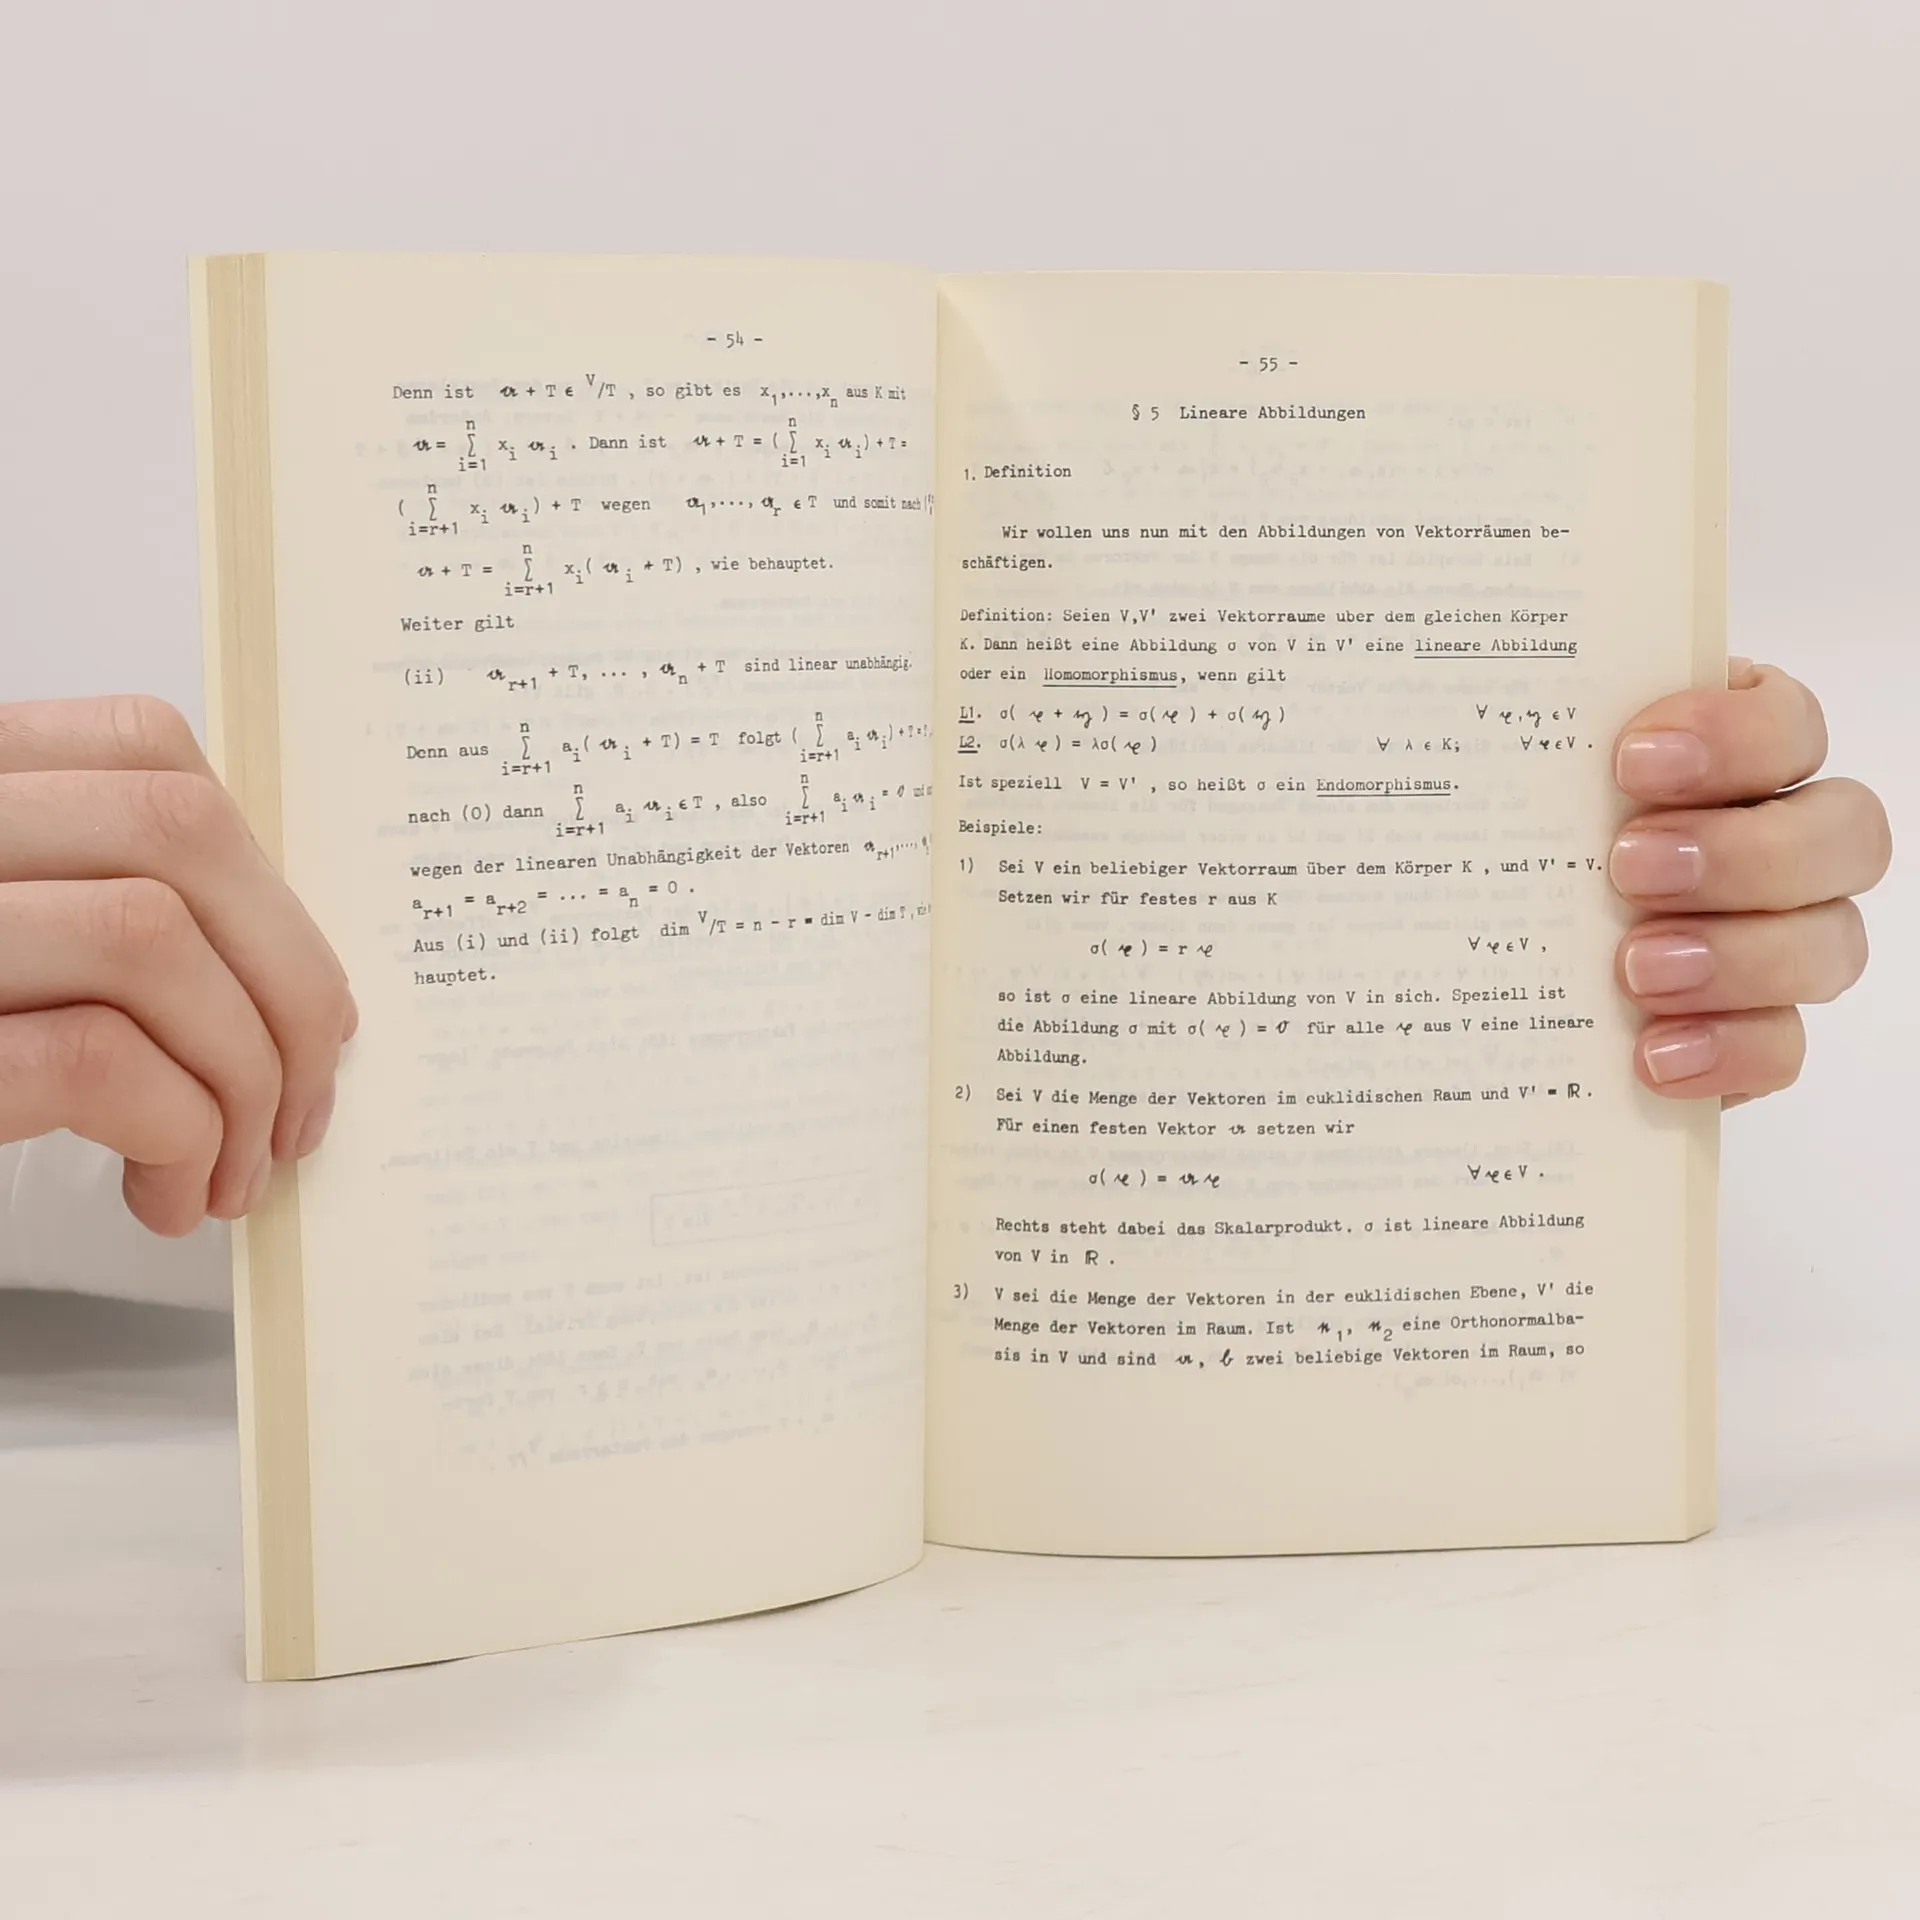 - 54 -
Denn ist 𝔞 + T ϵ V/T , so gibt es x₁,...,xₙ aus K mit
𝔞 = n Σ i=1 xᵢ 𝔞ᵢ . Dann ist 𝔞 + T = ( n Σ i=1 xᵢ 𝔞ᵢ) + T =
( n Σ i=r+1 xᵢ 𝔞ᵢ) + T wegen 𝔞₁,..., 𝔞ᵣ ϵ T und somit nach
𝔞 + T = n Σ i=r+1 xᵢ( 𝔞ᵢ + T) , wie behauptet.
Weiter gilt
(ii) 𝔞r+1 + T, ... , 𝔞ₙ + T sind linear unabhängig.
Denn aus n Σ i=r+1 aᵢ( 𝔞ᵢ + T) = T folgt ( n Σ i=r+1 aᵢ 𝔞ᵢ) + T = T
nach (0) dann n Σ i=r+1 aᵢ 𝔞ᵢ ϵ T , also n Σ i=r+1 aᵢ 𝔞ᵢ = 𝔬
wegen der linearen Unabhängigkeit der Vektoren 𝔞r+1,...,
ar+1 = ar+2 = ... = aₙ = 0 .
Aus (i) und (ii) folgt dim V/T = n - r = dim V - dim T ,
hauptet.
- 55 -
§ 5 Lineare Abbildungen
1. Definition
Wir wollen uns nun mit den Abbildungen von Vektorräumen be-
schäftigen.
Definition: Seien V,V' zwei Vektorraume uber dem gleichen Körper
K. Dann heißt eine Abbildung σ von V in V' eine lineare Abbildung
oder ein Homomorphismus, wenn gilt
L1. σ( 𝔵 + 𝔶 ) = σ( 𝔵 ) + σ( 𝔶 ) ∀ 𝔵,𝔶 ϵ V
L2. σ(λ 𝔵 ) = λσ( 𝔵 ) ∀ λ ϵ K; ∀ 𝔵 ϵ V .
Ist speziell V = V' , so heißt σ ein Endomorphismus.
Beispiele:
1) Sei V ein beliebiger Vektorraum über dem Körper K , und V' = V.
Setzen wir für festes r aus K
σ( 𝔵 ) = r 𝔵 ∀ 𝔵 ϵ V ,
so ist σ eine lineare Abbildung von V in sich. Speziell ist
die Abbildung σ mit σ( 𝔵 ) = 𝔬 für alle 𝔵 aus V eine lineare
Abbildung.
2) Sei V die Menge der Vektoren im euklidischen Raum und V' = ℝ .
Für einen festen Vektor 𝔞 setzen wir
σ( 𝔵 ) = 𝔞 𝔵 ∀ 𝔵 ϵ V .
Rechts steht dabei das Skalarprodukt. σ ist lineare Abbildung
von V in ℝ .
3) V sei die Menge der Vektoren in der euklidischen Ebene, V' die
Menge der Vektoren im Raum. Ist 𝔫₁, 𝔫₂ eine Orthonormalba-
sis in V und sind 𝔞, 𝔟 zwei beliebige Vektoren im Raum, so